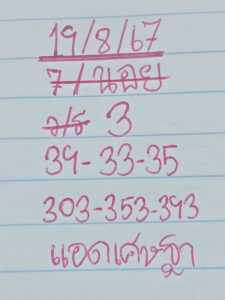 19/8/67
7/นอย
ว/ร 3
39-33-35
303-353-393
แอดเศษฐา